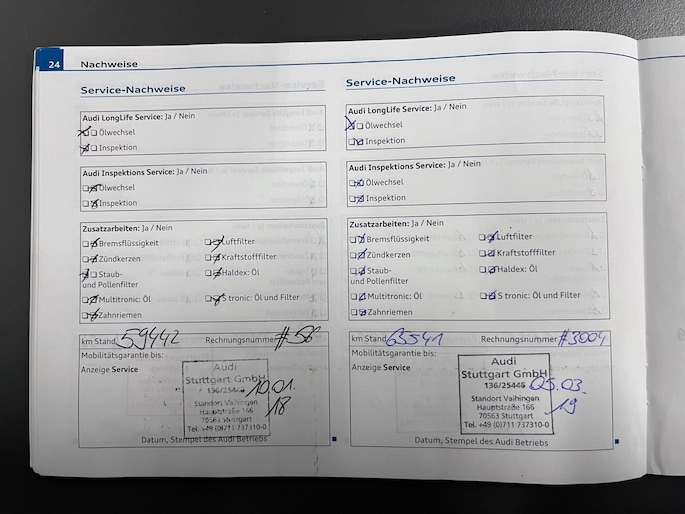 24 Nachweise
Service-Nachweise
Audi LongLife Service: Ja / Nein
Ölwechsel
Inspektion
Audi Inspektions Service: Ja / Nein
Ölwechsel
Inspektion
Zusatzarbeiten: Ja / Nein
Bremsflüssigkeit Luftfilter
Zündkerzen Kraftstofffilter
Staub- Haldex: Öl
und Pollenfilter
Multitronic: Öl S tronic: Öl und Filter
Zahnriemen
km Stand 59442 Rechnungsnummer #56
Mobilitätsgarantie bis:
Anzeige Service
Audi
Stuttgart GmbH
136/25445 10.01.
Standort Vaihingen 18
Hauptstraße 166
70563 Stuttgart
Tel. +49 (0)711 737310-0
Datum, Stempel des Audi Betriebs
Service-Nachweise
Audi LongLife Service: Ja / Nein
Ölwechsel
Inspektion
Audi Inspektions Service: Ja / Nein
Ölwechsel
Inspektion
Zusatzarbeiten: Ja / Nein
Bremsflüssigkeit Luftfilter
Zündkerzen Kraftstofffilter
Staub- Haldex: Öl
und Pollenfilter
Multitronic: Öl S tronic: Öl und Filter
Zahnriemen
km Stand 63541 Rechnungsnummer #3004
Mobilitätsgarantie bis:
Anzeige Service
Audi
Stuttgart GmbH
136/25445 05.03.
Standort Vaihingen 19
Hauptstraße 166
70563 Stuttgart
Tel. +49 (0)711 737310-0
Datum, Stempel des Audi Betriebs